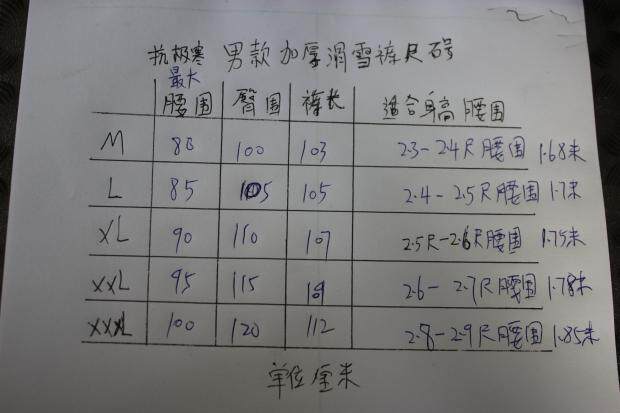 抗极寒 男款加厚滑雪裤尺码号
最大
腰围 臀围 裤长 适合身高 腰围
M 80 100 103 2.3-2.4尺腰围 1.68米
L 85 105 105 2.4-2.5尺腰围 1.7米
XL 90 110 107 2.5尺-2.6尺腰围 1.75米
XXL 95 115 109 2.6-2.7尺腰围 1.78米
XXXL 100 120 112 2.8-2.9尺腰围 1.85米
单位厘米